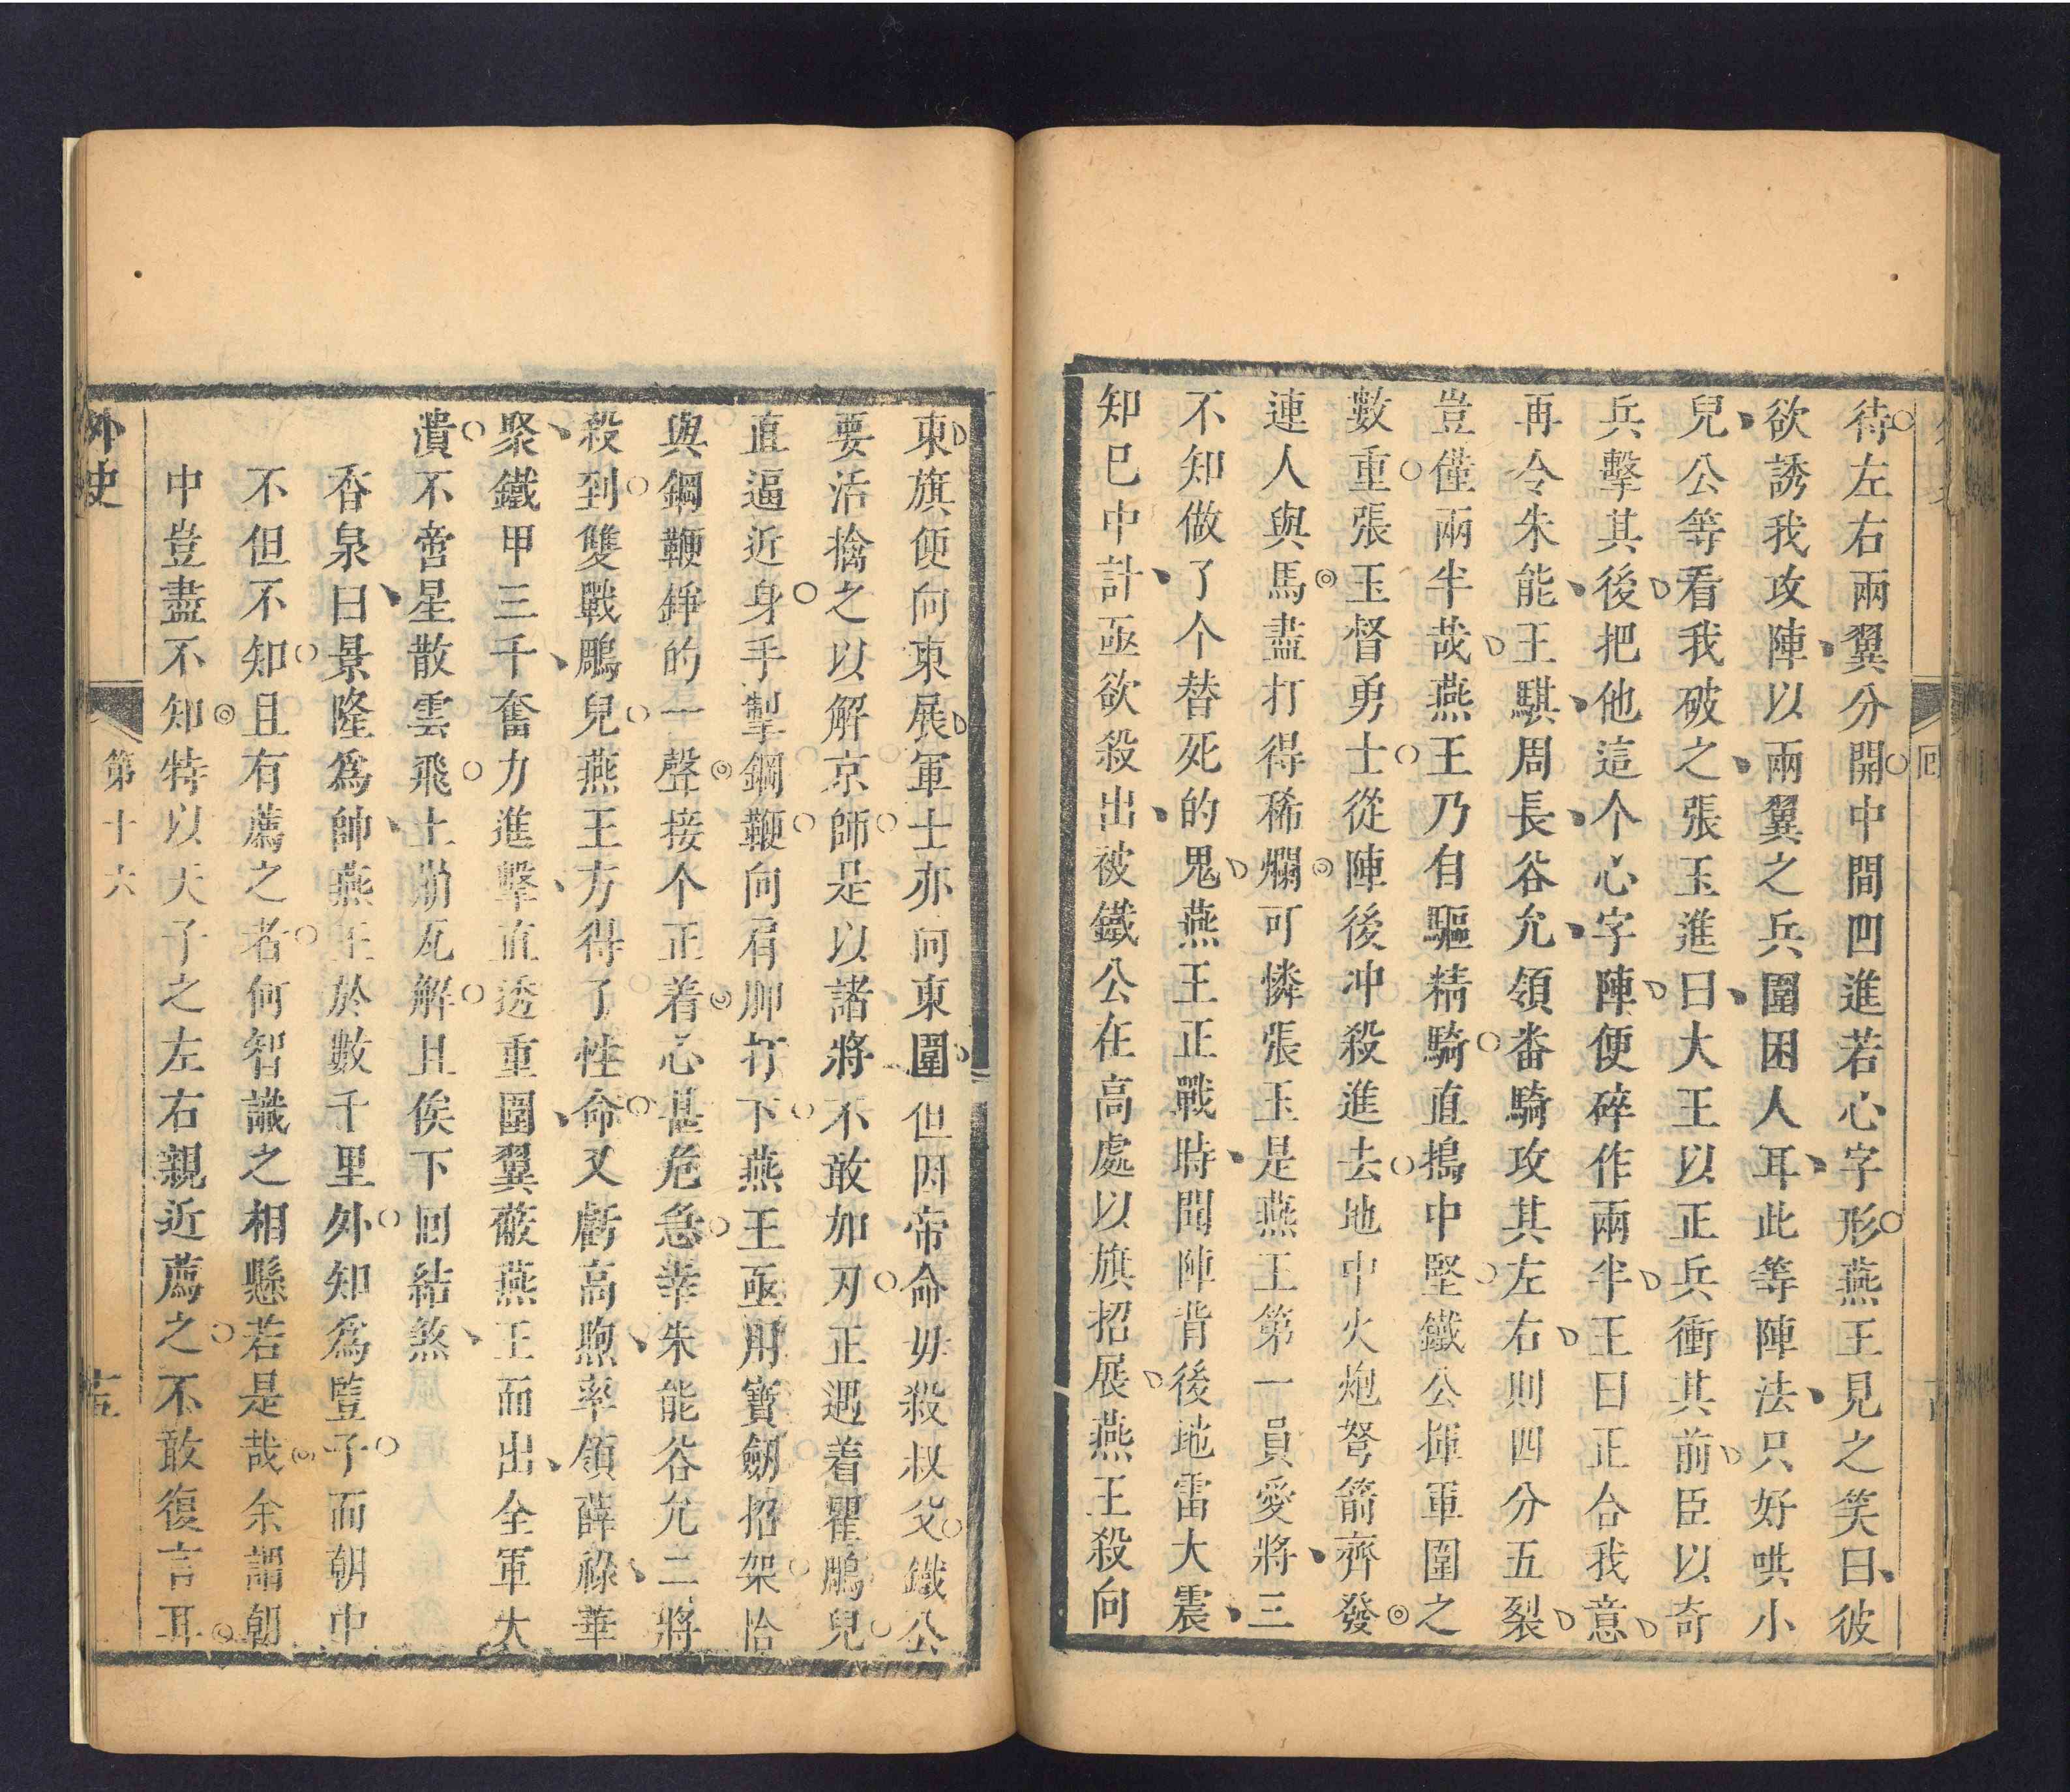 待左右兩翼分開中間凹進若心字形燕王見之笑曰彼
欲誘我攻陣以兩翼之兵圍困人耳此等陣法只好哄小
兒公等看我破之張玉進曰大王以正兵衝其前臣以奇
兵擊其後把他這个心字陣便碎作兩半王曰正合我意
再令朱能王騏周長谷允領番騎攻其左右則四分五裂
豈僅兩半哉燕王乃自驅精騎直搗中堅鐵公揮軍圍之
數重張玉督勇士從陣後冲殺進去地中火炮弩箭齊發
連人與馬盡打得稀爛可憐張玉是燕王第一員愛將三
不知做了个替死的鬼燕王正戰時聞陣背後地雷大震
知已中計亟欲殺出被鐵公在高處以旗招展燕王殺向
東旗便向東展軍士亦向東圍但因帝命毋殺叔父鐵公
要活擒之以解京師是以諸將不敢加刃正遇着瞿鵰兒
直逼近身手掣鋼鞭向肩胛打下燕王亟用寶劒招架恰
與鋼鞭錚的一聲接个正着心甚危急幸朱能谷允二將
殺到雙戰鵰兒燕王方得了性命又虧高煦率領薛祿華
聚鐵甲三千奮力進擊直透重圍翼蔽燕王而出全軍大
潰不啻星散雲飛土崩瓦解且俟下回結煞
香泉曰景隆爲帥燕王於數千里外知爲豎子而朝中
不但不知且有薦之者何智識之相懸若是哉余謂朝
中豈盡不知特以天子之左右親近薦之不敢復言耳
外史
第十六
十五